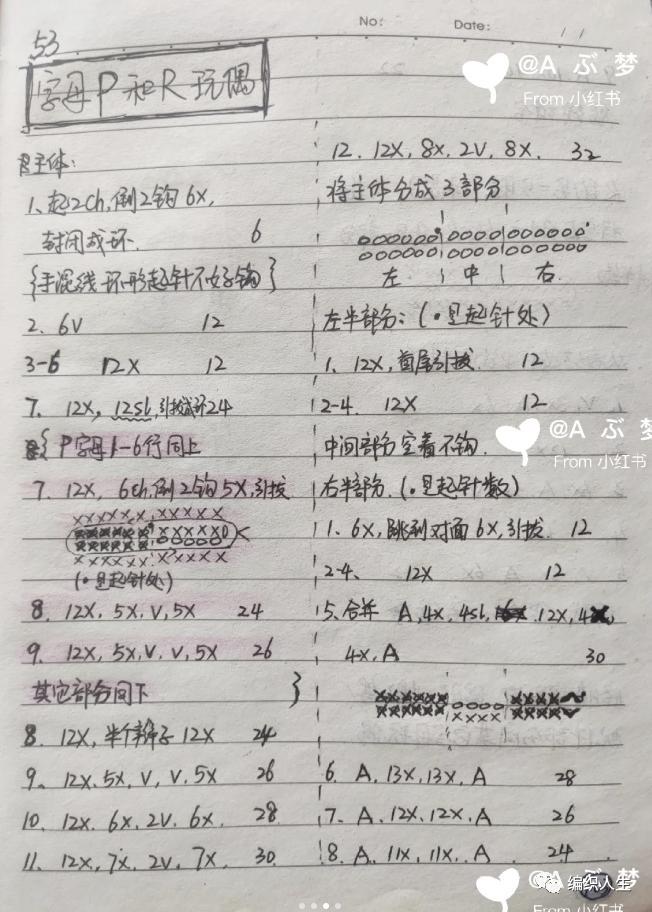 No:
Date:
53
字母P和R玩偶
主体:
1、起2ch,倒2钩6X,
封闭成环.
6
{手混线环形起针不好钩}
2. 6V 12
3-6 12X 12
7. 12X, 12sl,引拔成环24
{P字母1-6行同上
7. 12X, 6ch,倒2钩5X,引拔
(•是起针处)
8. 12X, 5X, V, 5X 24
9. 12X, 5X, V, V, 5X 26
其它部分同下 }
8. 12X, 半个辫子12X 24
9、12X. 5X, V, V. 5X 26
10. 12X. 6X. 2V. 6X. 28
11. 12X, 7X. 2V, 7X. 30
12. 12X, 8X, 2V, 8X. 32
将主体分成3部分
左 中 右
左半部分: (•是起针处)
1. 12X,首尾引拔. 12
2-4. 12X 12
中间部分空着不钩.
右半部分. (•是起针数)
1. 6X, 跳到对面6X, 引拔. 12
2-4、 12X 12
5.合并 A, 4X, 4sl, 12X, 4
4X, A 30
6. A, 13X, 13X, A 28
7. A, 12X, 12X, A 26
8. A, 11X, 11X, A 24
@A ぶ 梦
From 小红书
@A ぶ 梦
From 小红书
@A ぶ 梦
编织人生